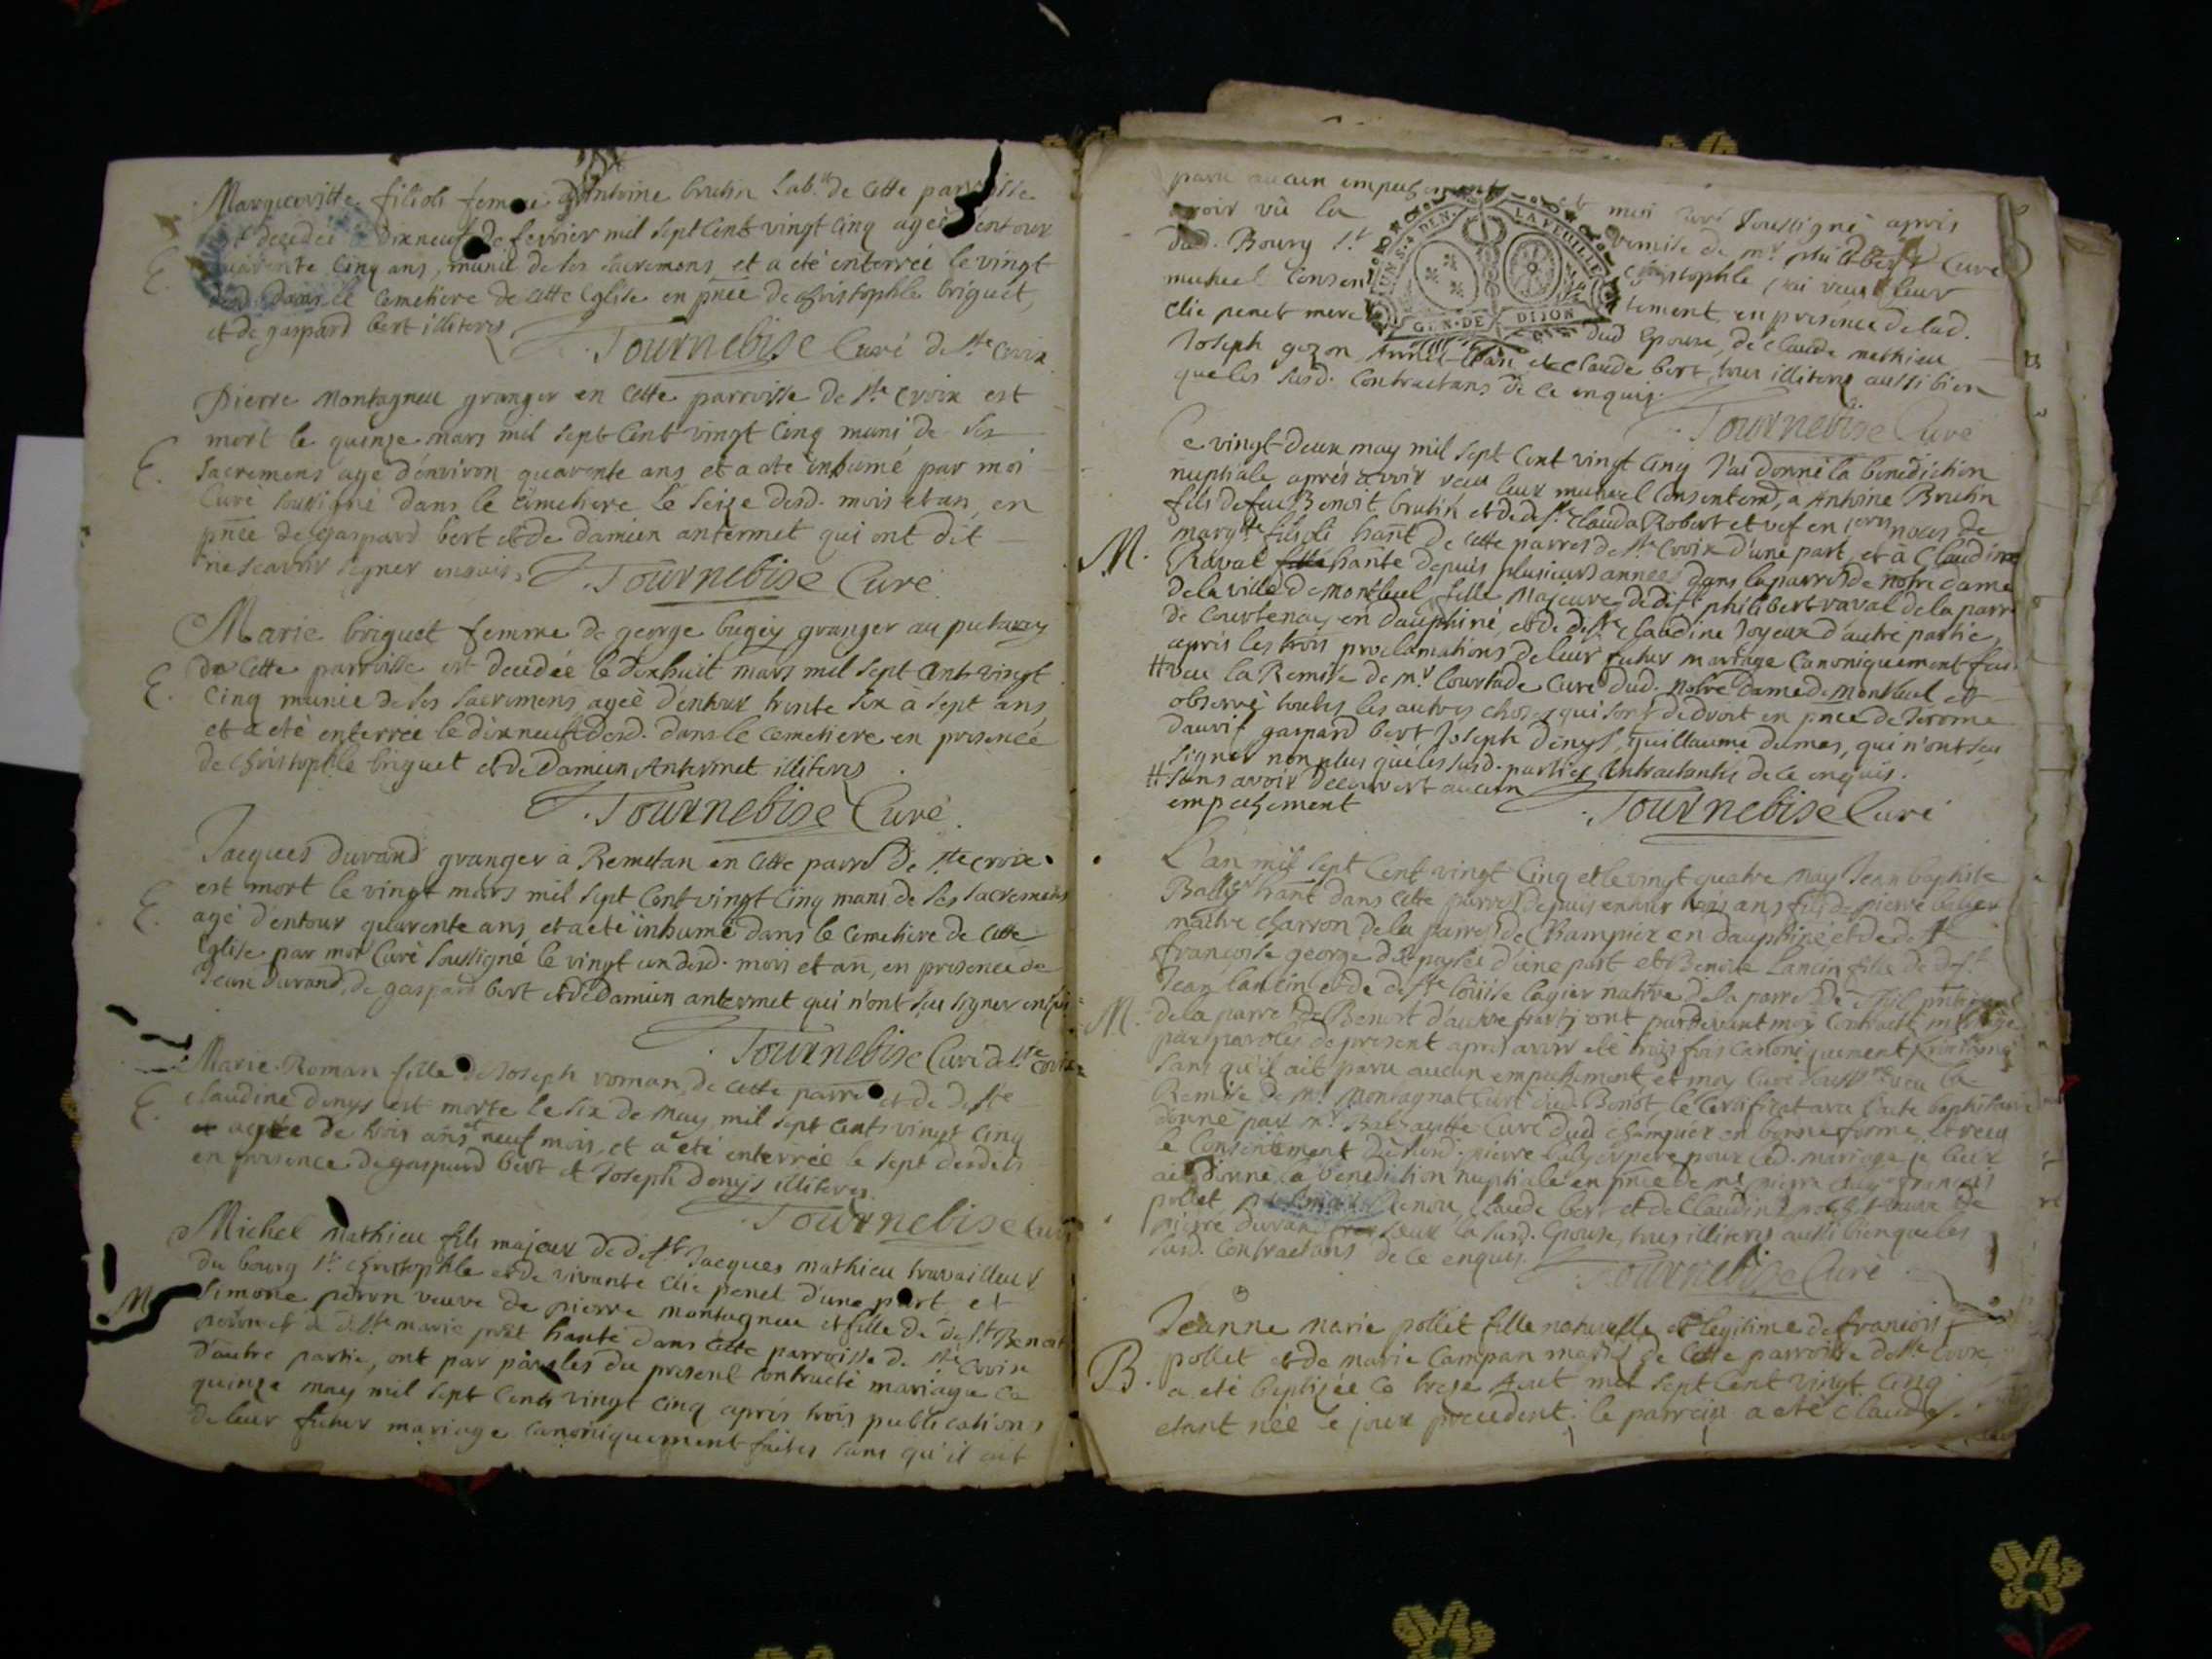 Marguevitte filioli femme d'Antoine brutin Lab.r de Cette parroisse
est decedée dixneuf de fevrier mil sept Cent vingt Cinq ageé d'entour
quarente Cinq ans, munie de ses sacremens, et a eté enterrée le vingt
E.
dud. dans le Cemetiere de Cette Eglise en pnce de christophle briguet,
et de gaspard bert illiteres
Tournebise Curé de Ste Croix
Pierre Montagneu granger en Cette parroisse de Ste Croix est
mort le quinze mars mil sept Cent vingt Cinq muni de ses
E.
Sacremens agé d'environ quarente ans et a eté inhumé par moi
Curé soussigné dans le Cimetiere le seize desd. mois et an, en
pnce de gaspard bert et de damien antermet qui ont dit
ne scavoir signer enquis
Tournebise Curé
Marie briguet femme de george bugey granger au putavay
de Cette parroisse est decedée le dixhuit mars mil sept Cent vingt
E.
Cinq munie de ses sacremens, ageé d'entour trente six à sept ans,
et a eté enterrée le dixneuf desd. dans le Cemetiere en presence
de Christophle briguet et de Damien Antermet illiteres
Tournebise Curé
Jacques durand granger à Remetan en Cette parre de Ste Croix
est mort le vingt mars mil sept Cent vingt Cinq muni de ses sacremens
E.
agé d'entour quarente ans et a eté inhumé dans le Cemetiere de Cette
Eglise par moi Curé soussigné le vingt un desd. mois et an, en presence de
Jean durand, de gaspard bert et de Damien antermet qui n'ont seu signer enquis
Tournebise Curé de Ste Croix
Marie Roman fille de Joseph roman de Cette parre et de deffte
E.
Claudine denys est morte le six de may mil sept Cents vingt Cinq
ageé de trois ans et neuf mois, et a eté enterrée le sept desdits
en presence de gaspard bert et Joseph denys illiteres
Tournebise Curé
Michel Mathieu fils majeur de defft Jacques mathieu travailleur
du bourg St Christophle et de vivante Clie penet d'une part et
M
Simone peron veuve de pierre montagneu et fille de defft Benoit
peron et de deffte marie prêt hante dans Cette parroisse de Ste Croix
d'autre partie, ont par paroles du present Contracté mariage Ce
quinze may mil sept Cents vingt Cinq après trois publications
de leur futur mariage Canoniquement faites sans qu'il ait
paru aucun empechement et moi Curé soussigné après
avoir vû la remise de mr philibert Curé
dud. Bourg St Christophle j'ai receu leur
mutuel Consentement en presence de lad.
Clie penet mere dud Epoux, de Claude mathieu
Joseph gozon et Claude bert, tous illiteres aussi bien
que les susd. Contractans de ce enquis
UN S. 4 DEN. LA FEUILLE
GEN. DE DIJON
Tournebise Curé
Ce vingt deux may mil sept Cent vingt Cinq J'ai donné la benediction
nuptiale après avoir receu leur mutuel Consentemt, a Antoine Brutin
fils de feu Benoit brutin et de defte Clauda Robert et vef en iers noces de
margte filioli hant de Cette parre de Ste Croix d'une part, et à Claudine
M.
Raval hante depuis plusieurs années dans la parre de notre dame
de la ville de Montluel, fille Majeure de defft philibert raval de la parre
de Courtenay en dauphiné, et de deffte Claudine Joyeux d'autre partie,
après les trois proclamations de leur futur mariage Canoniquement faites
# veu la Remise de mr Courtade Curé dud. notre dame de Montluel et
observé toutes les autres choses qui sont de droit en pnce de Jerome
dauvis gaspard bert Joseph denys, guillaume dumas, qui n'ont seu
signer non plus que les susd. parties Contractantes de ce enquis.
# sans avoir decouvert aucun
empechement
Tournebise Curé
L'an mil sept Cent vingt Cinq et le vingt quatre may Jean baptiste
Ballyr hant dans Cette parre depuis entour trois ans fils de pierre
maître Charron de la parre de Champier en dauphiné et de deffte
françoise george d'une part et Benoite Lancin fille de defft
Jean lancin et de deffte loüise lagier native de la parre de
M.
de la parre de Benost d'autre party ont pardevant moy Contracté mariage
par paroles de present apres avoir eté trois fois canoniquement proclamés
sans qu'il ait paru aucun empechement, et moy Curé soussigné veu la
Remise de Mr Montagnat Curé dud. Benost, le Certificat avec l'acte baptistaire
donné par Mr Curé dud Champier en bonne forme, et receu
le Consentement dud. pierre pere pour led. mariage je leur
ai donné la benediction nuptiale en pnce de françois
pollet, Claude bert et de Claudine pollet veuve de
pierre duran la susd. Epouse, tous illiteres aussi bien que les
susd. Contractans de ce enquis.
Tournebise Curé
Jeanne marie pollet fille naturelle et legitime de françois
B.
pollet et de marie Campan mariés de Cette parroisse de Ste Croix
a eté baptizée Ce treze Aout mil sept Cent vingt Cinq
etant née le jour precedent; le parrein a eté Claude